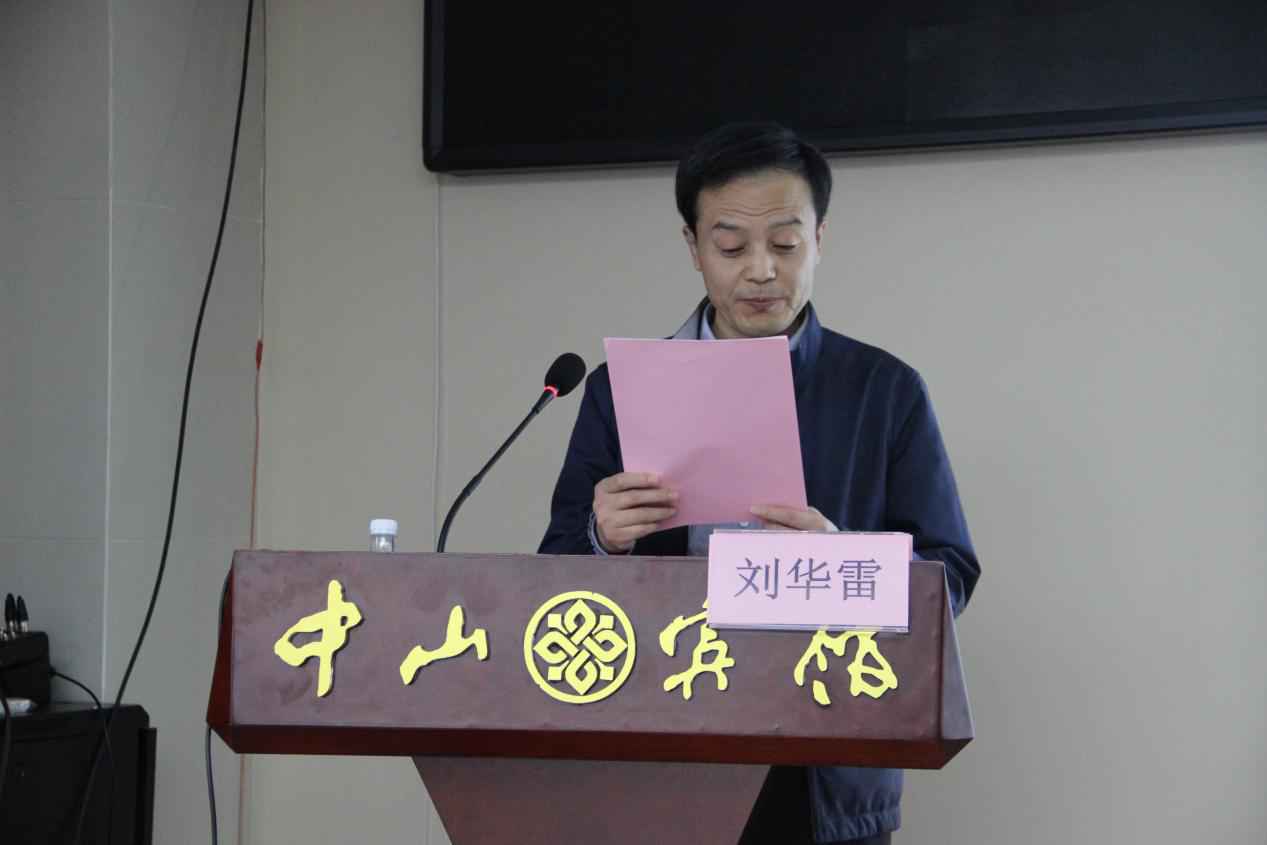 刘华雷
中山宾馆